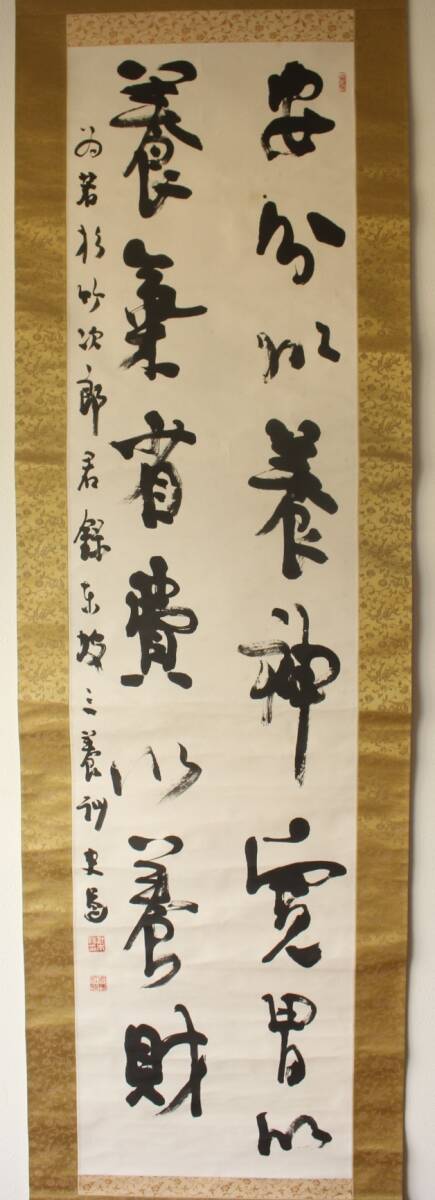 安分以養神寛胃以
養氣省費以養財
為若杉竹次郎君録東坡三養訓 史邑